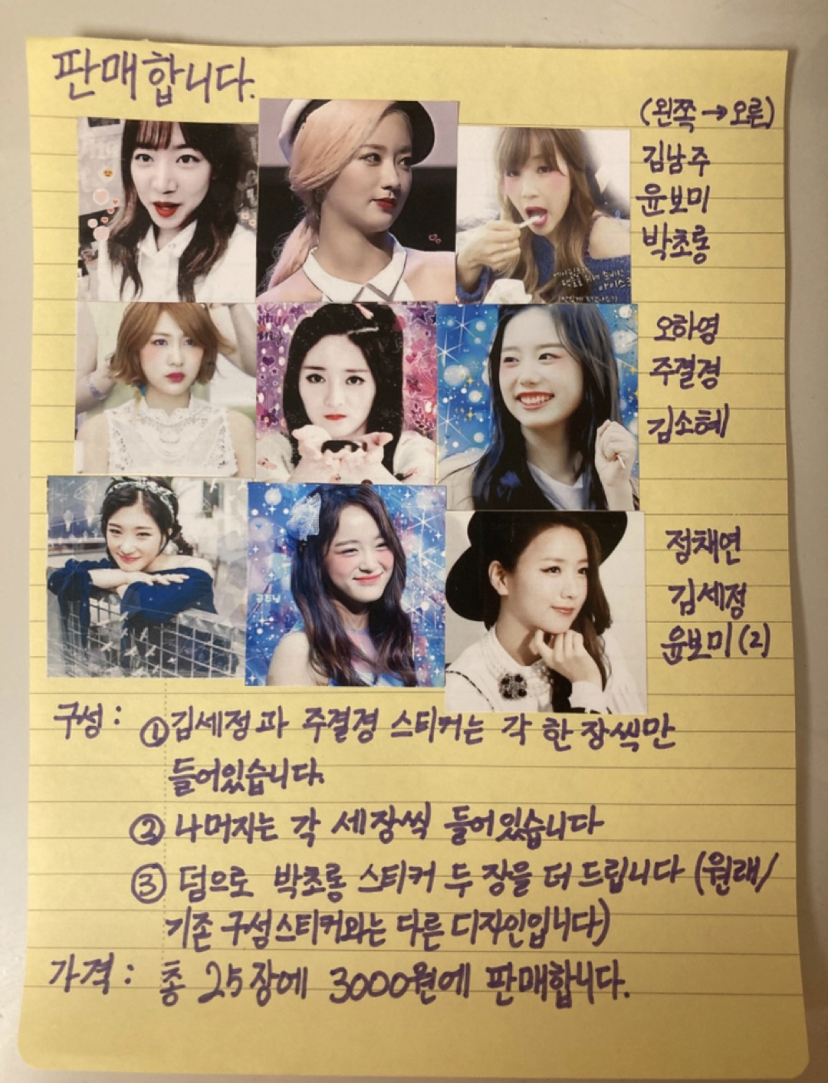 판매합니다.
(왼쪽→오른)
김남주
윤보미
박초롱
오하영
주결경
김소혜
정채연
김세정
윤보미(2)
구성: ①김세정과 주결경 스티커는 각 한 장씩만
들어있습니다.
② 나머지는 각 세장씩 들어있습니다
③ 덤으로 박초롱 스티커 두 장을 더 드립니다 (원래/
기존 구성스티커와는 다른 디자인입니다)
가격: 총 25장에 3000원에 판매합니다.